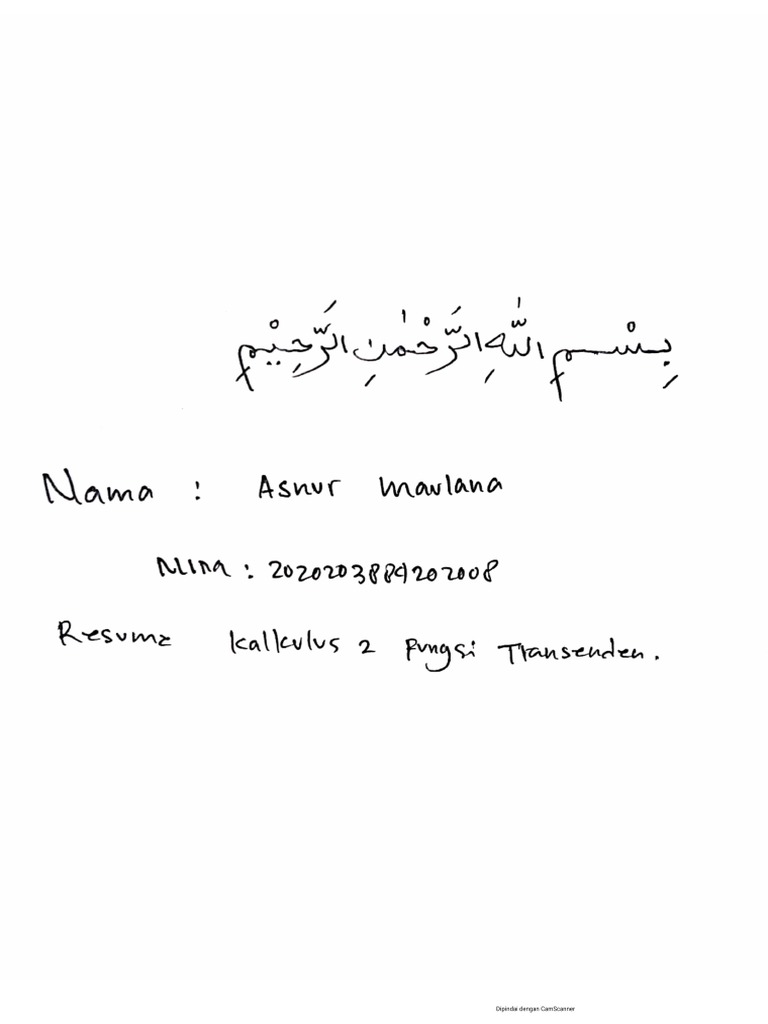 بِسْمِ اللّٰهِ الرَّحْمٰنِ الرَّحِيْمِ
Nama : Asnur Maulana
Nim : 2020203884202008
Resume Kalkulus 2 Fungsi Transenden.
Dipindai dengan CamScanner